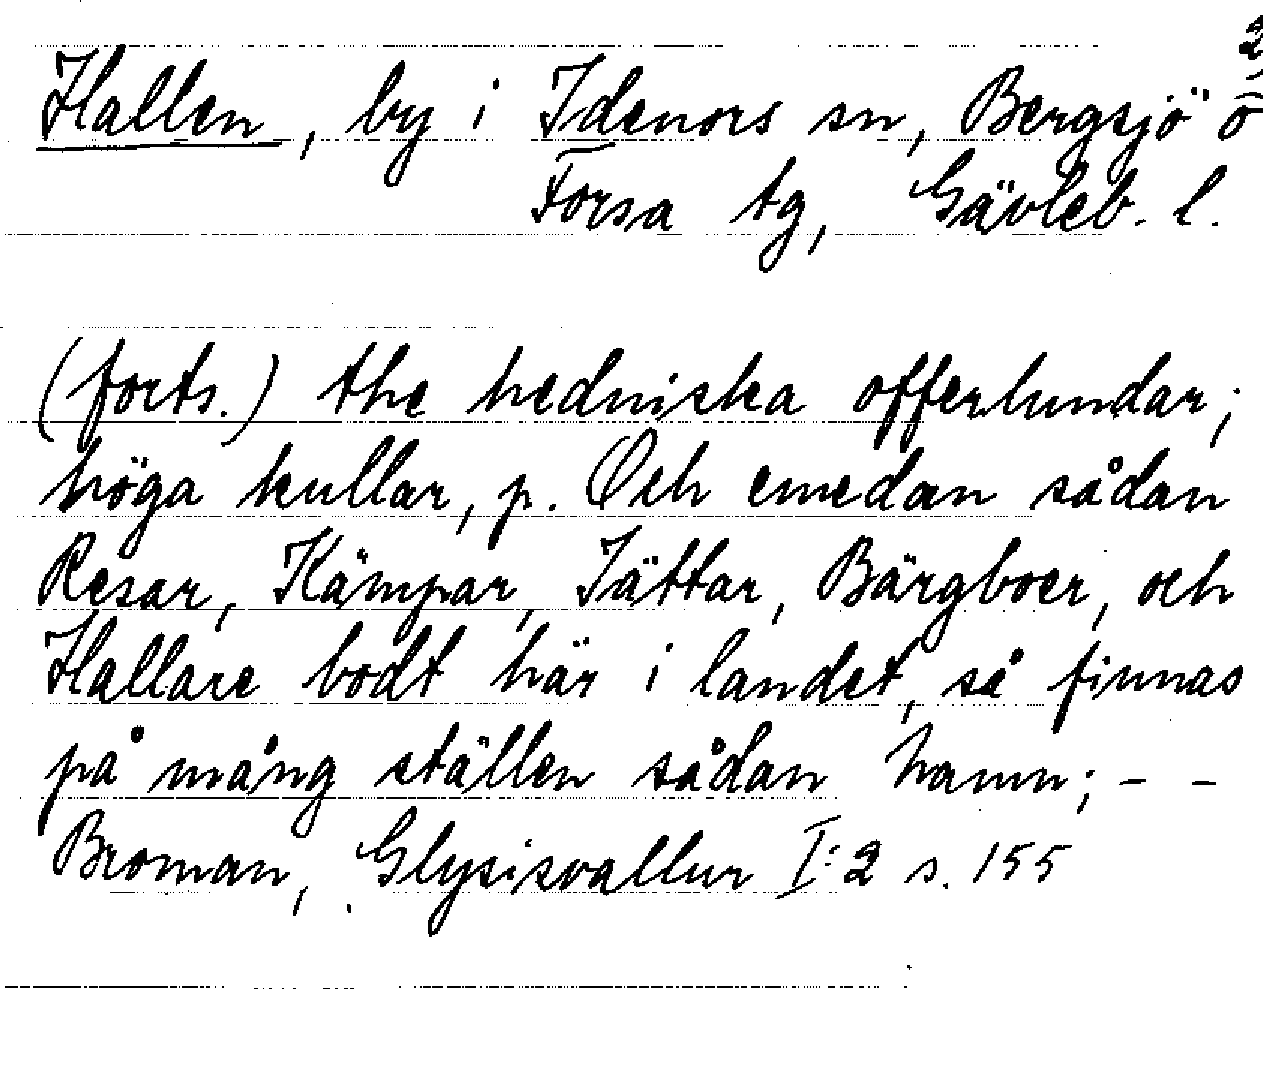 2,
Hallen, by i Idenors sn, Bergsjö o
Forsa tg, Gävleb. l.
(forts.) the hedniska offerlundar;
höga kullar, p. Och emedan sådan
Resar, Kämpar, Jättar, Bärgboer, och
Hallare bodt här i landet, så finnas
på mång ställen sådan namn; - -
Broman, Glysisvallur I:2 s. 155